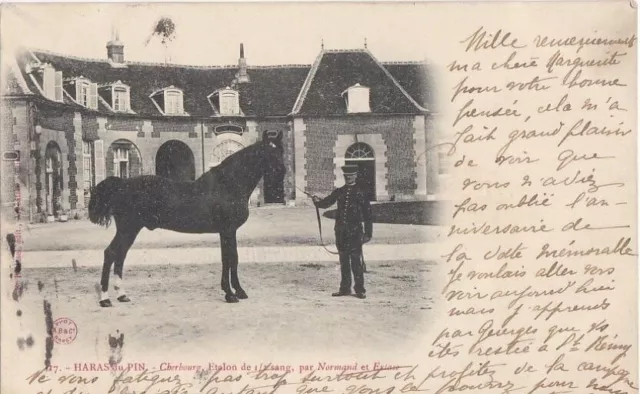 Mille remerciements
ma chère Marguerite
pour votre bonne
pensée, cela m'a
fait grand plaisir
de voir que
vous n'aviez
pas oublié l'an-
niversaire de
la date mémorable
Je voulais aller vous
voir aujourd'hui
mais j'apprends
par Georges que vs
êtes restée à St Rémy
Ne vous fatiguez pas trop surtout et profitez de la campagne
17. - HARAS du PIN. - Cherbourg, Etalon de 1/2 sang, par Normand et